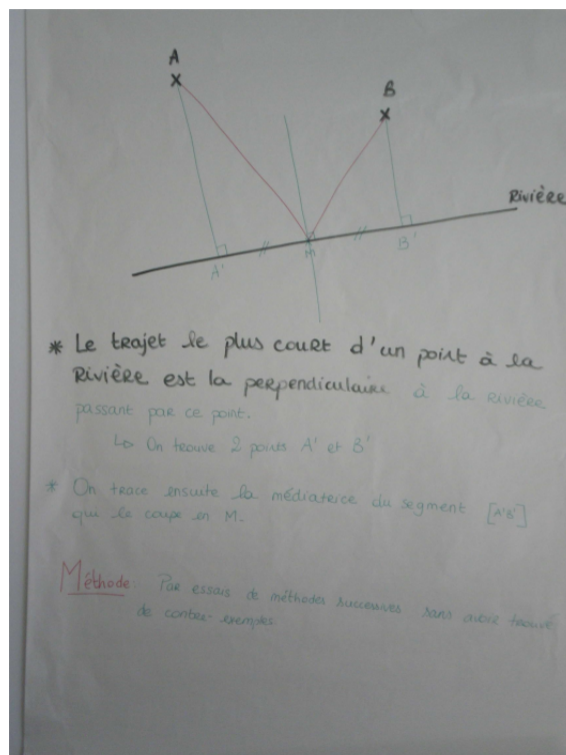 A
B
Rivière
A'
M
B'
* Le trajet le plus court d'un point à la
Rivière est la perpendiculaire à la rivière
passant par ce point.
↳ On trouve 2 points A' et B'
* On trace ensuite la médiatrice du segment [A'B']
qui le coupe en M.
Méthode: Par essais de méthodes successives sans avoir trouvé
de contre-exemples